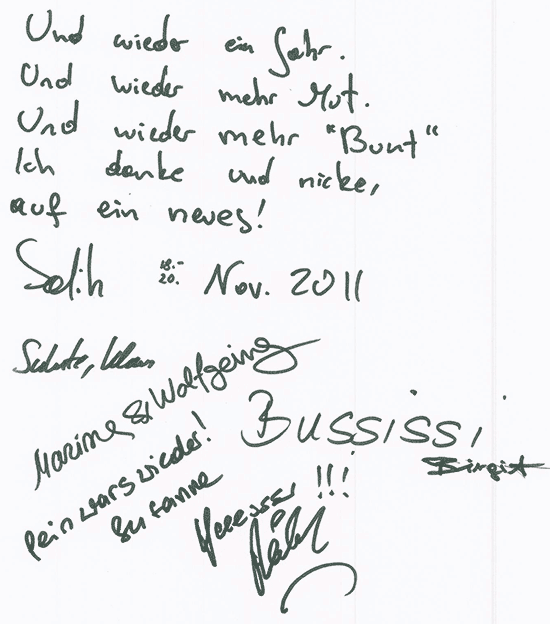 Und wieder ein Jahr.
Und wieder mehr Mut.
Und wieder mehr "Bunt"
Ich danke und nicke,
auf ein neues!
Salih 18.- 20. Nov. 2011
Marina & Wolfgang
BUSSISSI
Birgit
fein wars wieder!
Susanne
!!!